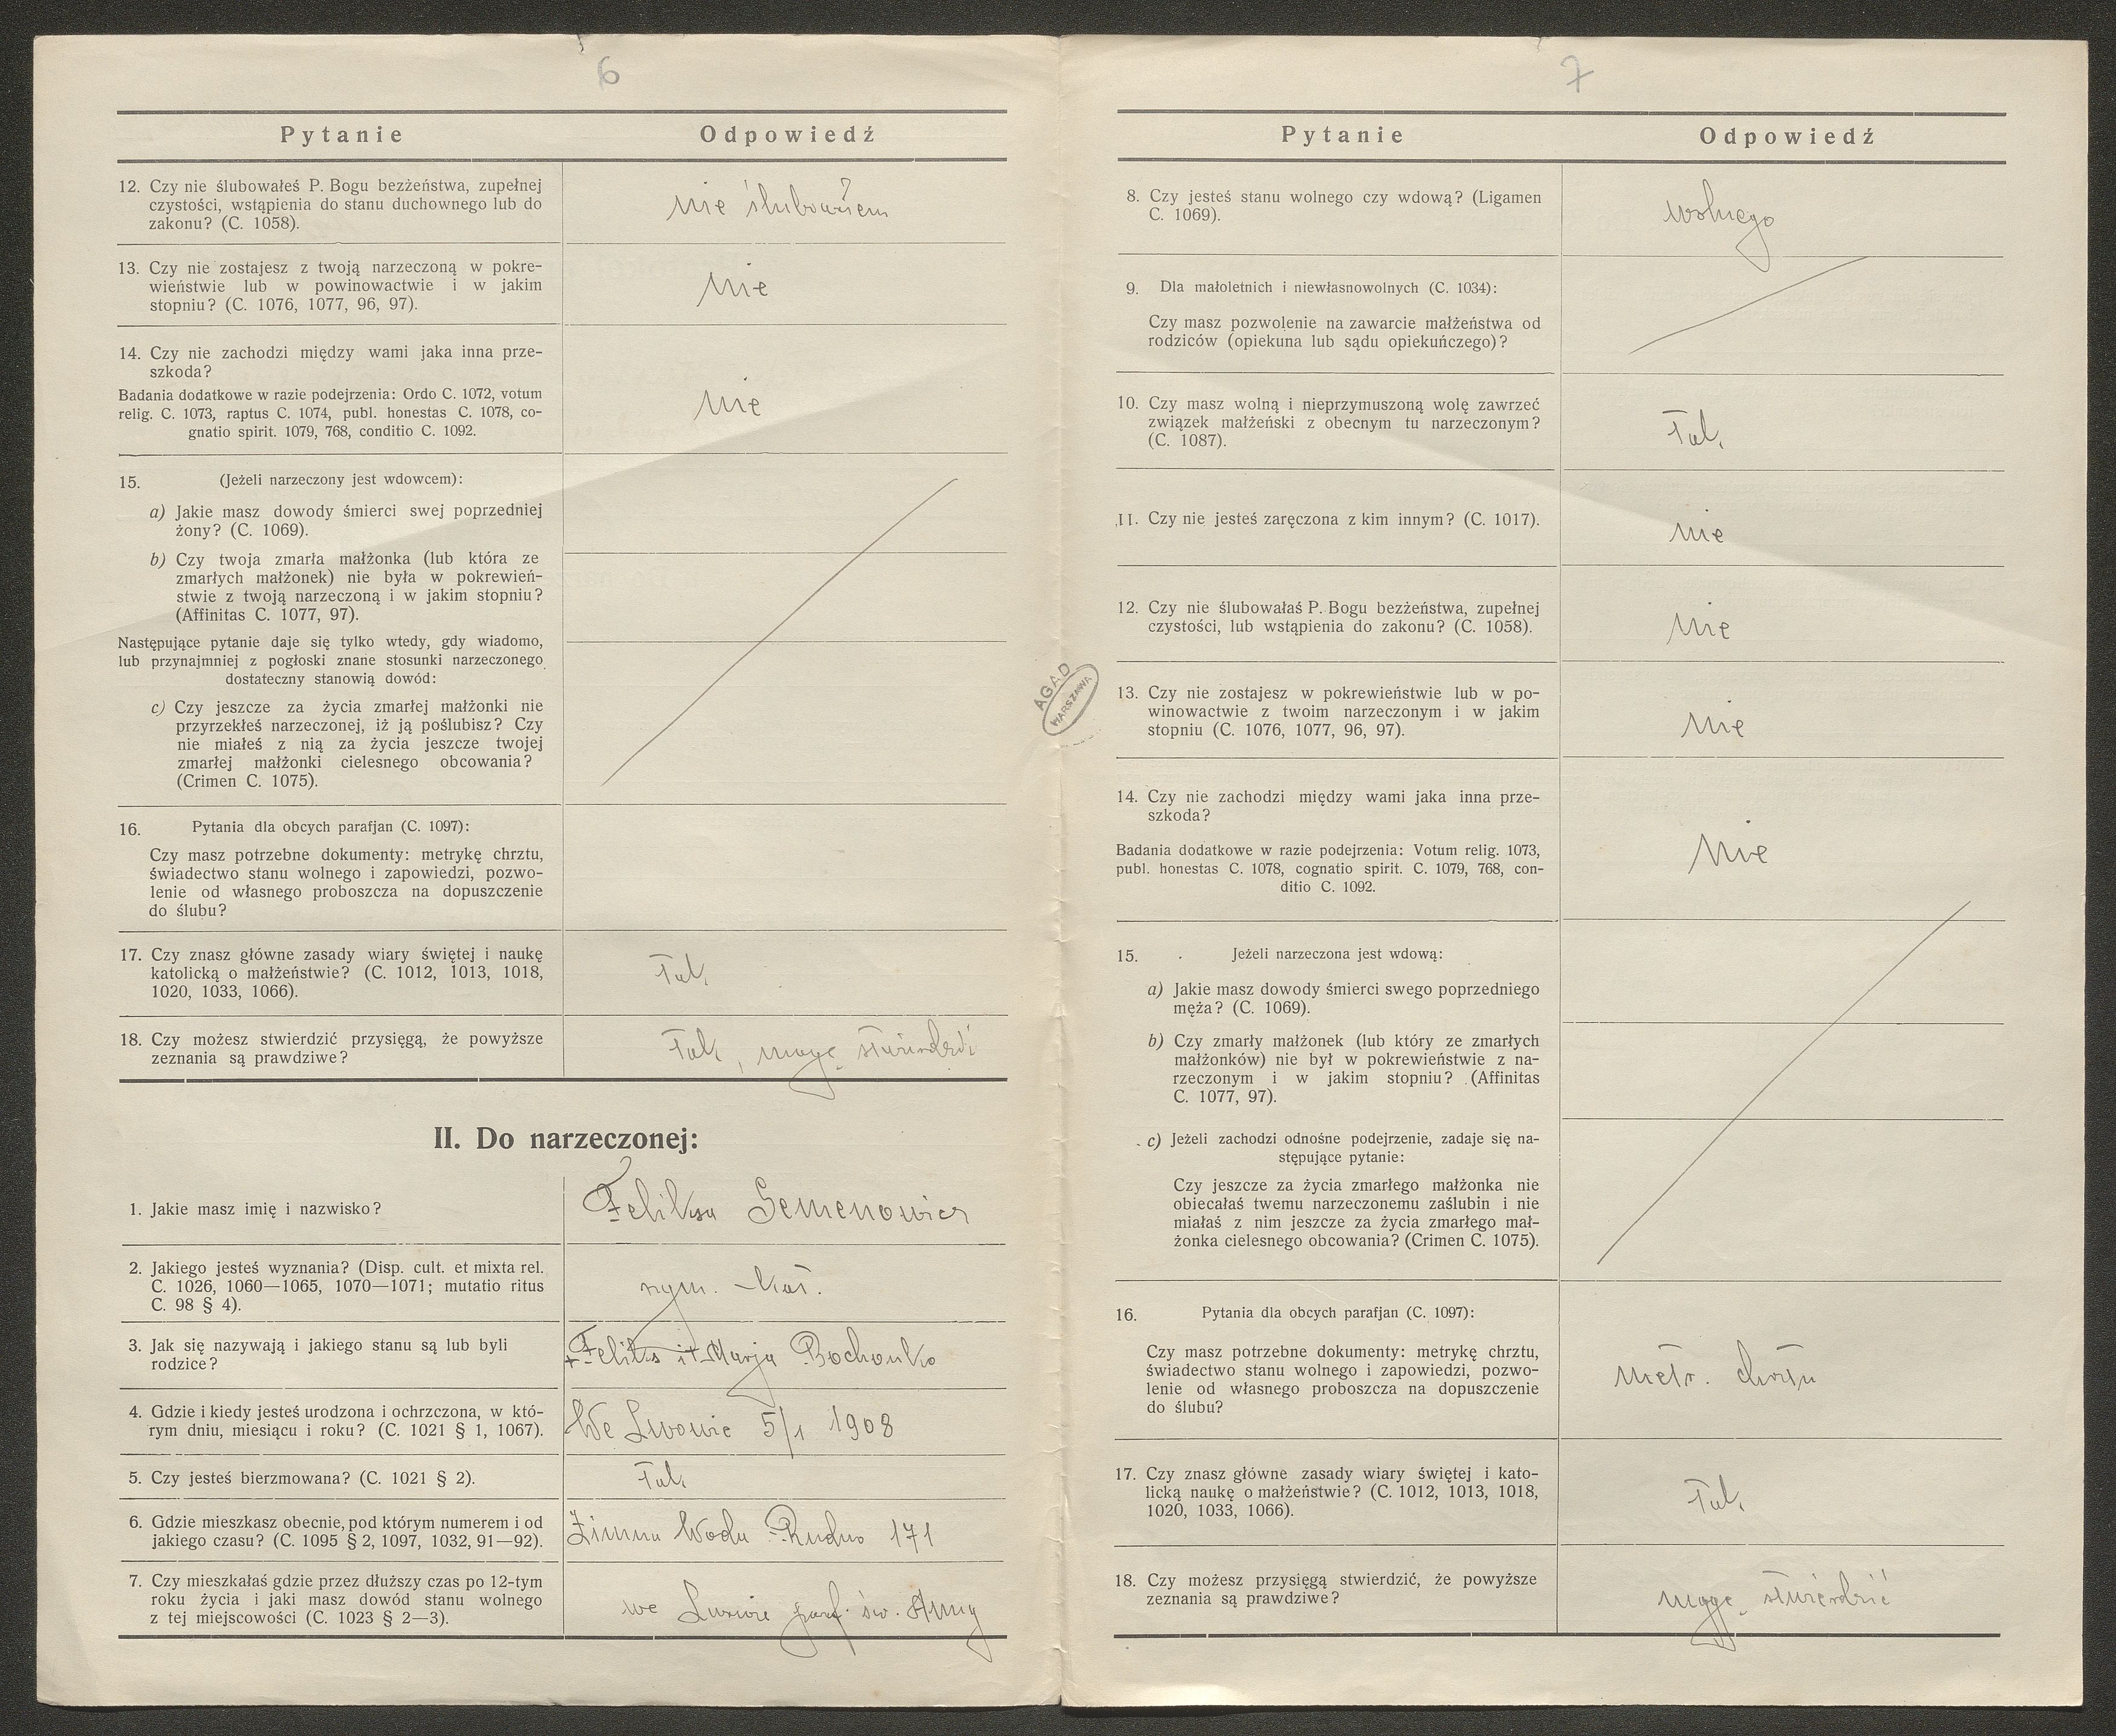 6
Pytanie Odpowiedź
12. Czy nie ślubowałeś P. Bogu bezżeństwa, zupełnej
czystości, wstąpienia do stanu duchownego lub do
zakonu? (C. 1058).
nie ślubowałem
13. Czy nie zostajesz z twoją narzeczoną w pokre-
wieństwie lub w powinowactwie i w jakim
stopniu? (C. 1076, 1077, 96, 97).
nie
14. Czy nie zachodzi między wami jaka inna prze-
szkoda?
Badania dodatkowe w razie podejrzenia: Ordo C. 1072, votum
relig. C. 1073, raptus C. 1074, publ. honestas C. 1078, co-
gnatio spirit. 1079, 768, conditio C. 1092.
nie
15. (Jeżeli narzeczony jest wdowcem):
a) Jakie masz dowody śmierci swej poprzedniej
żony? (C. 1069).
b) Czy twoja zmarła małżonka (lub która ze
zmarłych małżonek) nie była w pokrewień-
stwie z twoją narzeczoną i w jakim stopniu?
(Affinitas C. 1077, 97).
Następujące pytanie daje się tylko wtedy, gdy wiadomo,
lub przynajmniej z pogłoski znane stosunki narzeczonego
dostateczny stanowią dowód:
c) Czy jeszcze za życia zmarłej małżonki nie
przyrzekłeś narzeczonej, iż ją poślubisz? Czy
nie miałeś z nią za życia jeszcze twojej
zmarłej małżonki cielesnego obcowania?
(Crimen C. 1075).
16. Pytania dla obcych parafjan (C. 1097):
Czy masz potrzebne dokumenty: metrykę chrztu,
świadectwo stanu wolnego i zapowiedzi, pozwo-
lenie od własnego proboszcza na dopuszczenie
do ślubu?
17. Czy znasz główne zasady wiary świętej i naukę
katolicką o małżeństwie? (C. 1012, 1013, 1018,
1020, 1033, 1066).
Tak,
18. Czy możesz stwierdzić przysięgą, że powyższe
zeznania są prawdziwe?
Tak, mogę stwierdzić
II. Do narzeczonej:
1. Jakie masz imię i nazwisko?
Feliksa Semenowicz
2. Jakiego jesteś wyznania? (Disp. cult. et mixta rel.
C. 1026, 1060—1065, 1070—1071; mutatio ritus
C. 98 § 4).
rzym. - kat.
3. Jak się nazywają i jakiego stanu są lub byli
rodzice?
+Feliks i + Marja Bochonko
4. Gdzie i kiedy jesteś urodzona i ochrzczona, w któ-
rym dniu, miesiącu i roku? (C. 1021 § 1, 1067).
We Lwowie 5/1 1908
5. Czy jesteś bierzmowana? (C. 1021 § 2).
Tak,
6. Gdzie mieszkasz obecnie, pod którym numerem i od
jakiego czasu? (C. 1095 § 2, 1097, 1032, 91—92).
Zimna Woda Rudno 171
7. Czy mieszkałaś gdzie przez dłuższy czas po 12-tym
roku życia i jaki masz dowód stanu wolnego
z tej miejscowości (C. 1023 § 2—3).
we Lwowie parf. św. Anny
AGAD
WARSZAWA
7
Pytanie Odpowiedź
8. Czy jesteś stanu wolnego czy wdową? (Ligamen
C. 1069).
wolnego
9. Dla małoletnich i niewłasnowolnych (C. 1034):
Czy masz pozwolenie na zawarcie małżeństwa od
rodziców (opiekuna lub sądu opiekuńczego)?
10. Czy masz wolną i nieprzymuszoną wolę zawrzeć
związek małżeński z obecnym tu narzeczonym?
(C. 1087).
Tak,
11. Czy nie jesteś zaręczona z kim innym? (C. 1017).
nie
12. Czy nie ślubowałaś P. Bogu bezżeństwa, zupełnej
czystości, lub wstąpienia do zakonu? (C. 1058).
nie
13. Czy nie zostajesz w pokrewieństwie lub w po-
winowactwie z twoim narzeczonym i w jakim
stopniu (C. 1076, 1077, 96, 97).
nie
14. Czy nie zachodzi między wami jaka inna prze-
szkoda?
Badania dodatkowe w razie podejrzenia: Votum relig. 1073,
publ. honestas C. 1078, cognatio spirit. C. 1079, 768, con-
ditio C. 1092.
nie
15. Jeżeli narzeczona jest wdową:
a) Jakie masz dowody śmierci swego poprzedniego
męża? (C. 1069).
b) Czy zmarły małżonek (lub który ze zmarłych
małżonków) nie był w pokrewieństwie z na-
rzeczonym i w jakim stopniu? (Affinitas
C. 1077, 97).
c) Jeżeli zachodzi odnośne podejrzenie, zadaje się na-
stępujące pytanie:
Czy jeszcze za życia zmarłego małżonka nie
obiecałaś twemu narzeczonemu zaślubin i nie
miałaś z nim jeszcze za życia zmarłego mał-
żonka cielesnego obcowania? (Crimen C. 1075).
16. Pytania dla obcych parafjan (C. 1097):
Czy masz potrzebne dokumenty: metrykę chrztu,
świadectwo stanu wolnego i zapowiedzi, pozwo-
lenie od własnego proboszcza na dopuszczenie
do ślubu?
metr. chrztu
17. Czy znasz główne zasady wiary świętej i kato-
licką naukę o małżeństwie? (C. 1012, 1013, 1018,
1020, 1033, 1066).
Tak,
18. Czy możesz przysięgą stwierdzić, że powyższe
zeznania są prawdziwe?
mogę stwierdzić